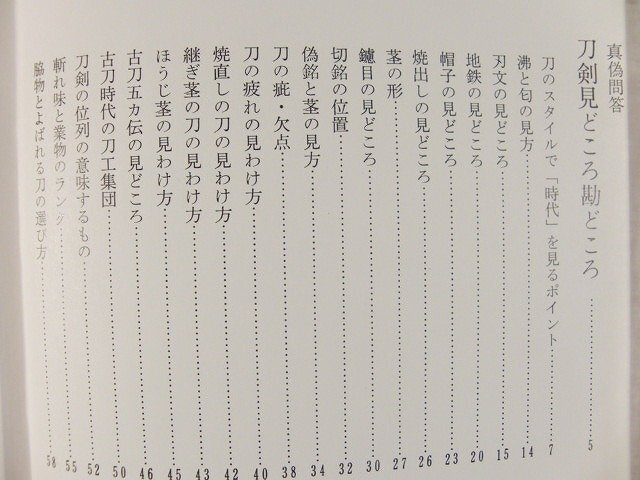 真偽問答
刀剣見どころ勘どころ……5
刀のスタイルで「時代」を見るポイント……7
沸と匂の見方……14
刃文の見どころ……15
地鉄の見どころ……20
帽子の見どころ……23
焼出しの見どころ……26
茎の形……27
鑢目の見どころ……30
切銘の位置……32
偽銘と茎の見方……34
刀の疵・欠点……38
刀の疲れの見わけ方……40
焼直しの刀の見わけ方……42
継ぎ茎の刀の見わけ方……43
ほうじ茎の見わけ方……45
古刀五カ伝の見どころ……46
古刀時代の刀工集団……50
刀剣の位列の意味するもの……52
斬れ味と業物のランク……55
脇物とよばれる刀の選び方……58